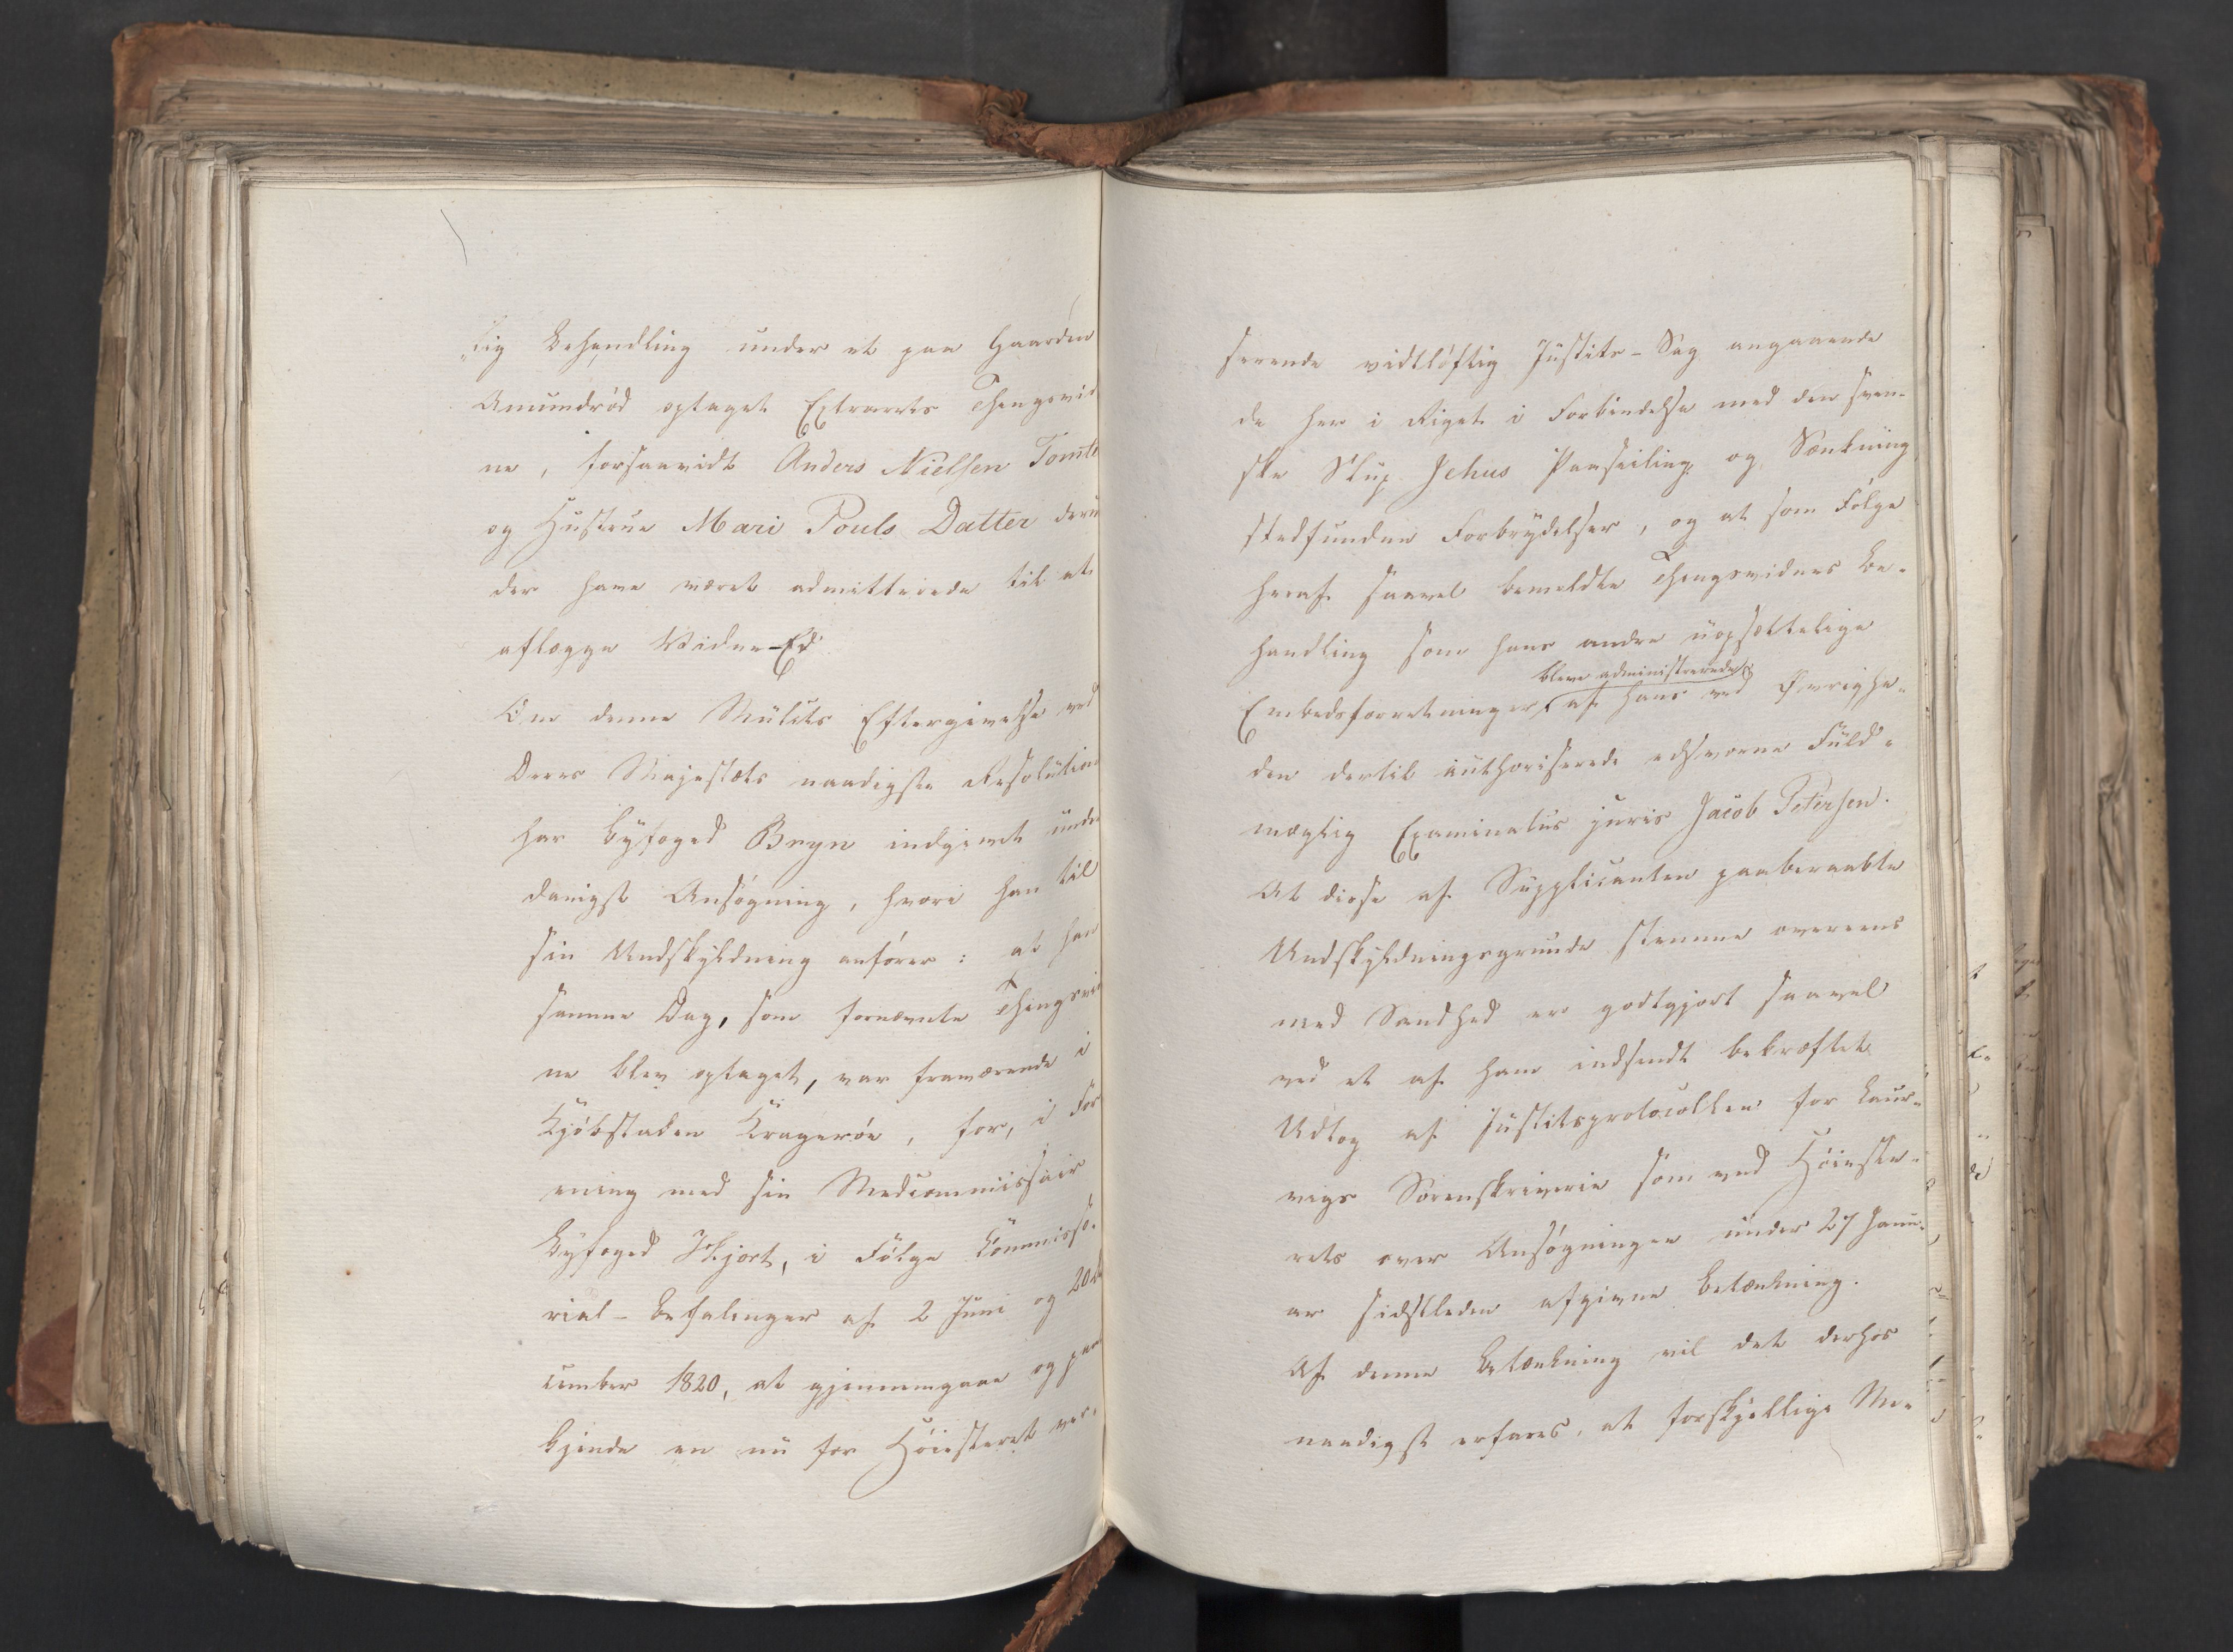 "lig Behandling under et paa Gaarden
Anundrød optaget Extrarets Thingsvid
ne, forsaavidt Anders Nielsen Tomte
og Hustrue Mari Pouls Datter derun
der have været admitterede til at
aflægge Vidne-Ed.
Om denne Mulcts Eftergivelse ved
Deres Majestæts naadigste Resolution
har Byfoged Bryn indgivet under
danigst Ansøgning, hvori han til
sin Undskyldning anfører: at han
samme Dag, som fornævnte Thingsvid
ne blev optaget, var fraværende i
Kjøbstaden Kragerøe, for, i For
ening med sin Medcommissair
Byfoged Hjort, i Følge Commisso-
rial-Befalinger af 2 Juni og 20 De
cember 1820, at gjennemgaae og paa
kjende en nu for Høiesteret ver-
serende vidtløftig Justits-Sag angaaende
de her i Riget i Forbindelse med den sven-
ske Skup Jehus Paaseiling og Sænkning
stedfundne Forbrydelser, og at som Følge
heraf saavel bemeldte Thingsvidnes Be-
handling som hans andre uopsættelige
bleve administrerede
Embedsforretninger, af hans ved Øvrighe-
den dertil authoriserede edsvorne Fuld-
mægtig Examinatus juris Jacob Petersen.
At disse af Supplicanten paaberaabte
Undskyldningsgrunde stemme overeens
med Sandhed er godtgjort saavel
ved et af ham indsendt bekræftet
Udtog af Justitsprotocollen for Laur-
vigs Sorenskriverie som ved Høieste-
rets over Ansøgningen under 27 Janu-
ar sidstleden afgivne Betænkning.
Af denne Betænkning vil det derhos
naadigst erfares, at forskjellige Me-